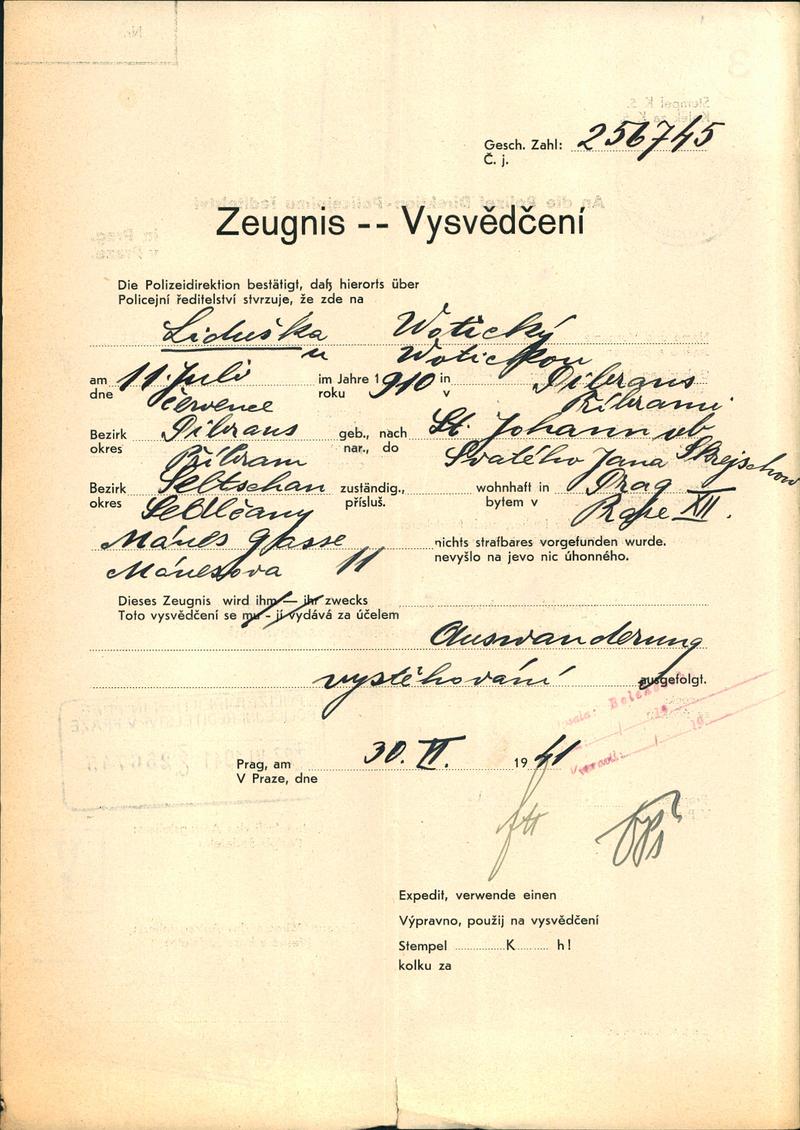 Gesch. Zahl: 256745
Č. j.
Zeugnis -- Vysvědčení
Die Polizeidirektion bestätigt, daß hierorts über
Policejní ředitelství stvrzuje, že zde na
Liduška Wotický
u Wotickou
am 11. Juli im Jahre 1910 in Pibrans
dne července roku v Příbrami
Bezirk Pibrans geb., nach St. Johann ob
okres Příbram nar., do Svatého Jana Skrejschow
Bezirk Seltschan zuständig., wohnhaft in Prag
okres Sedlčany přísluš. bytem v Praze XII.
Mánes Gasse nichts strafbares vorgefunden wurde.
Mánesova 11 nevyšlo na jevo nic úhonného.
Dieses Zeugnis wird ihm — ihr zwecks
Toto vysvědčení se mu - jí vydává za účelem
Auswanderung
vystěhování ausgefolgt.
Prag, am 30. VI. 1941
V Praze, dne
Expedit, verwende einen
Výpravno, použij na vysvědčení
Stempel K h!
kolku za